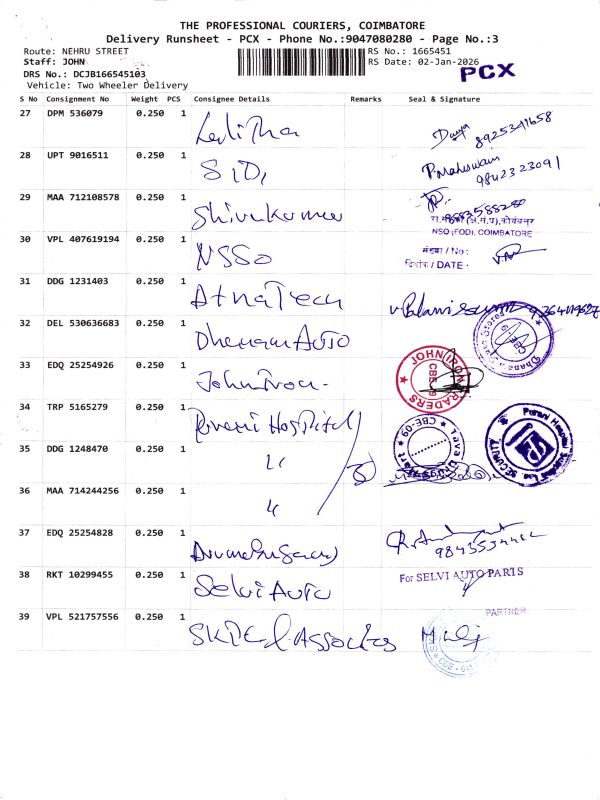 THE PROFESSIONAL COURIERS, COIMBATORE
Delivery Runsheet - PCX - Phone No.:9047080280 - Page No.:3
Route: NEHRU STREET
Staff: JOHN
DRS No.: DCJB166545103
Vehicle: Two Wheeler Delivery
RS No.: 1665451
RS Date: 02-Jan-2026
PCX
S No Consignment No Weight PCS Consignee Details Remarks Seal & Signature
27 DPM 536079 0.250 1 Lalitha 8925341658
28 UPT 9016511 0.250 1 SIDI 9842323091
29 MAA 712108578 0.250 1 Shivakumar
(अ.स.प्र),कोयंबटूर
NSO (FOD), COIMBATORE
30 VPL 407619194 0.250 1 NSSO
संख्या / No:
दिनांक / DATE -
31 DDG 1231403 0.250 1 AtnaTech
32 DEL 530636683 0.250 1 Dhanam Auto
33 EDQ 25254926 0.250 1 John Iron
JOHN IRON TRADERS
CBE-9
34 TRP 5165279 0.250 1 Porani Hospital
CBE-09
Porani Hospital
SECURITY
35 DDG 1248470 0.250 1 "
36 MAA 714244256 0.250 1 "
37 EDQ 25254828 0.250 1
38 RKT 10299455 0.250 1 Selvi Auto
For SELVI AUTO PARTS
PARTNER
39 VPL 521757556 0.250 1 SKPE & Associates